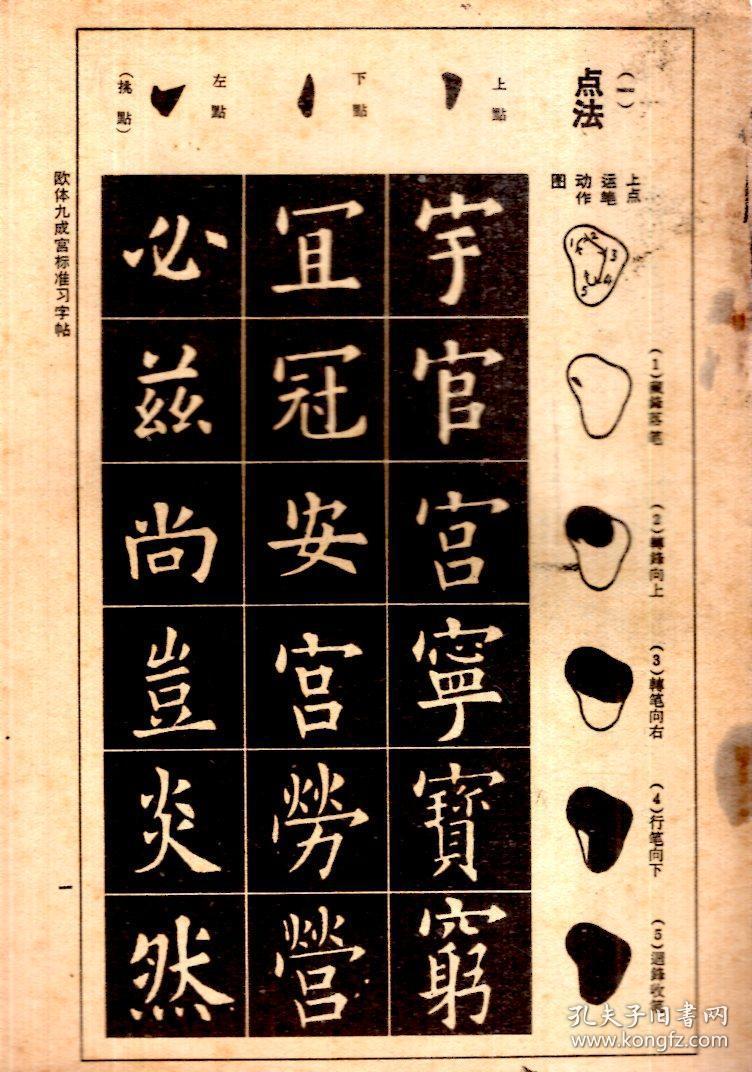 (一)
点法
上點
下點
左點
(挑點)
上点
运笔
动作
图
1 2 3 4 5
(1)藏鋒落笔
(2)轉鋒向上
(3)轉笔向右
(4)行笔向下
(5)迴鋒收笔
宇官宮寧寶窮
冝冠安宮勞營
必茲尚豈炎然
欧体九成宫标准习字帖
一
孔夫子旧书网
www.kongfz.com